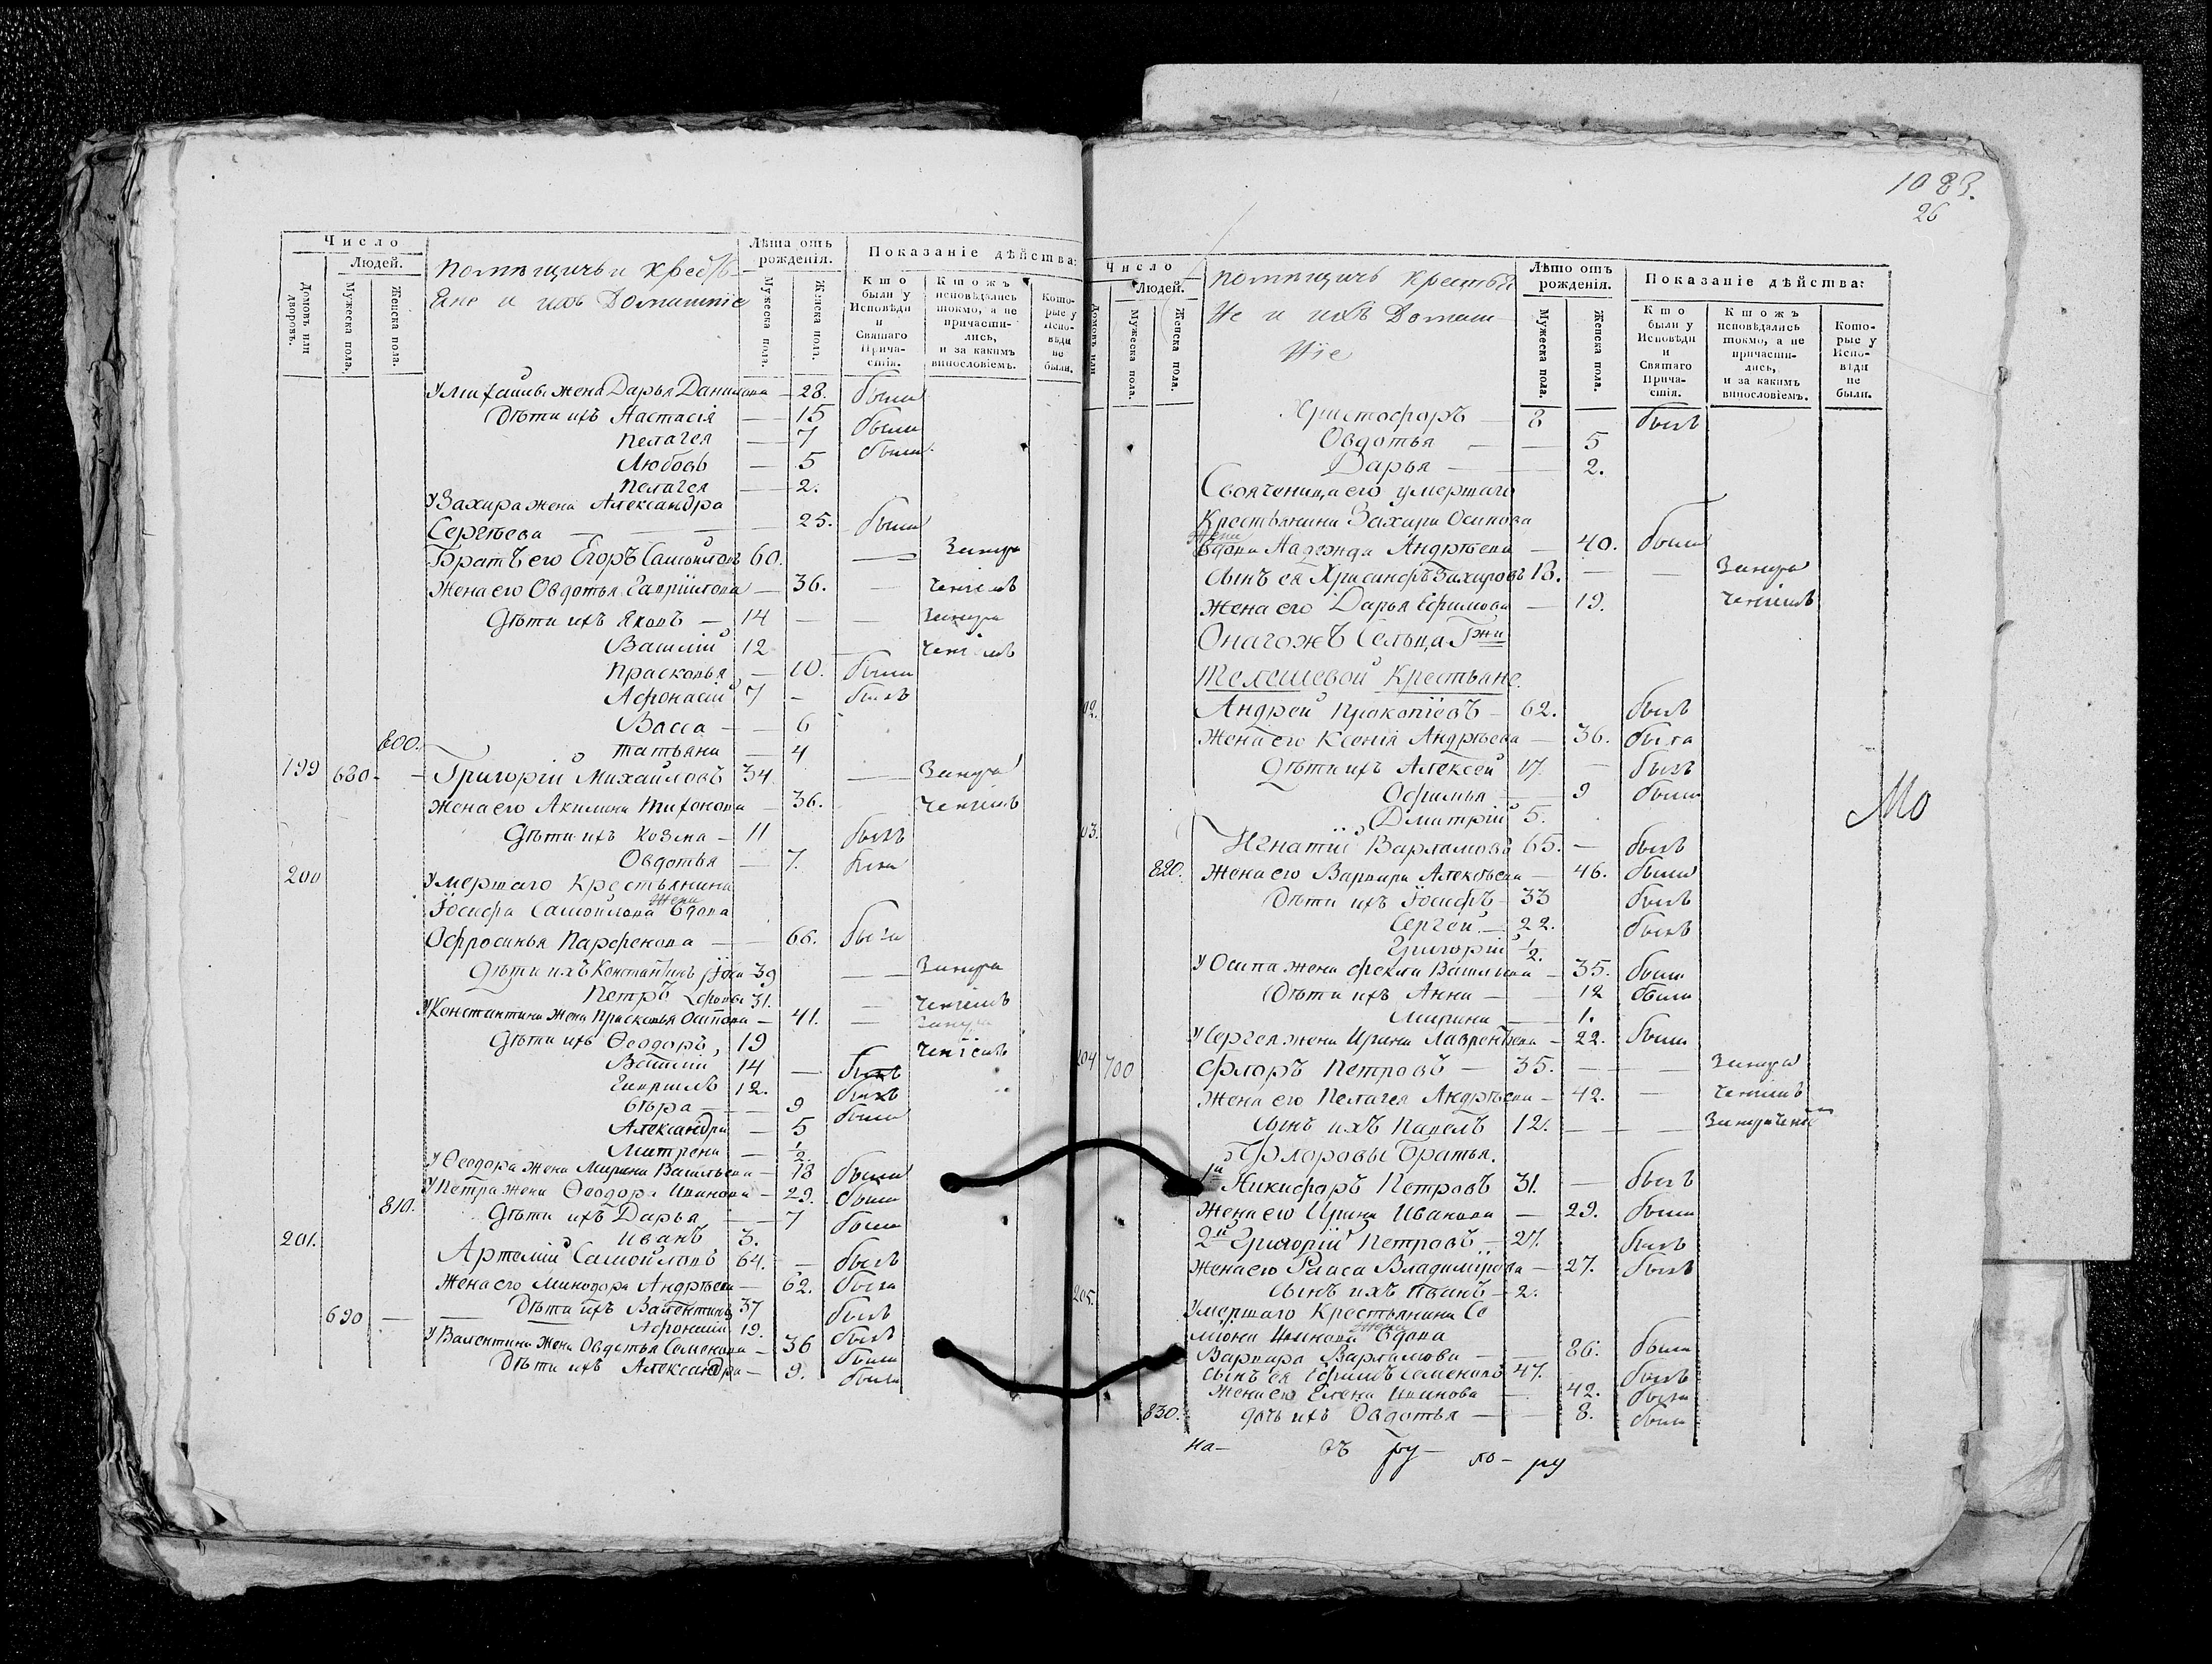 Число
Людей.
Домовъ или дворовъ.
Мужеска пола.
Женска пола.
помѣщичьи крестьяне и ихъ Домашніе
Лѣта отъ рожденія.
Мужеска пола.
Женска пола.
Показаніе дѣйства:
Кто были у Исповѣди и Святаго Причастія.
Ктожъ исповѣдались токмо, а не причастились, и за какимъ винословіемъ.
Которые у Исповѣди не были.
У жена Дарья Данилова — 28. была
Дѣти ихъ Настасія — 15 была
Пелагея — 7 была
Любовь — 5
Пелагея — 2.
У Захара жена Александра
Сергѣева — 25. была
Братъ его Егоръ Самойловъ 60. —
Жена его Овдотья Гавріилова — 36. —
Дѣти ихъ Яковъ — 14 — —
Василій 12
Прасковья — 10. была
Афонасій 7 — былъ
Васса — 6
800. Татьяна — 4
199 680 — Григорій Михайловъ 34 —
Жена его Акилина Тихонова — 36.
Дѣти ихъ Козма — 11 былъ
Овдотья — 7. была
200 Умершаго Крестьянина
Іосифа Самойлова Жена Вдова
Офросинья Парфенова — 66. была
Дѣти ихъ Константинъ 39 —
Петръ 31. —
У Константина жена Прасковья Осипова — 41. —
Дѣти ихъ Ѳеодоръ, 19
Василій 14 — былъ
Гавріилъ 12. былъ
Вѣра — 9 была
Александра — 5
Митрона — 1/2.
У Ѳеодора жена Марина Васильева — 18 была
У Петра жена Ѳеодора Иванова — 29. была
810. Дѣти ихъ Дарья — 7 была
Иванъ 3.
201. Артемій Самойловъ 64. — былъ
Жена его Минодора Андрѣева — 62. была
Дѣти ихъ Валентинъ 37 былъ
690 — Афонасій 19. былъ
У Валентина Жена Овдотья Семенова — 36 была
Дѣти ихъ Александра — 9. была
1083.
26
Число
Людей.
Домовъ или
Мужеска пола.
Женска пола.
помѣщичь крестьяне и ихъ Домашніе
Лѣто отъ рожденія.
Мужеска пола.
Женска пола.
Показаніе дѣйства:
Кто были у Исповѣди и Святаго Причастія.
Ктожъ исповѣдались токмо, а не причастились, и за какимъ винословіемъ.
Которые у Исповѣди не были.
Христофоръ — 8 былъ
Овдотья — 5
Дарья — 2.
Своячница его умершаго
Крестьянина Захара Осипова
Жена
Вдова Надежда Андрѣева — 40. была
Сынъ ея Хрисанфъ Захаровъ 18. — —
Жена его Дарья Ефимова — 19.
Онагожъ Сельца Гжи
Телешевой Крестьяне.
02. Андрей Прокопіевъ — 62. былъ
Жена его Ксенія Андрѣева — 36. была
Дѣти ихъ Алексей 17. — былъ
Офимья — 9 была
Дмитрій 5.
03. Игнатій Варламовъ 65. — былъ
820. Жена его Варвара Алексѣева — 46. была
Дѣти ихъ Іосифъ — 33 былъ
Сергей — 22. былъ
Григорій 1/2.
У Осипа жена Фекла Васильева — 35. была
Дѣти ихъ Анна — 12 была
Марина — 1.
У Сергея жена Ирина Лаврентьева — 22. была
204 700 Флоръ Петровъ — 35. — —
Жена его Пелагея Андрѣева — 42. —
Сынъ ихъ Павелъ 12. — —
Флоровы Братья.
1й Никифоръ Петровъ 31. — былъ
Жена его Ирина Иванова — 29. была
2й Григорій Петровъ — 27. былъ
Жена его Раиса Владимірова — 27. былъ
Сынъ ихъ Иванъ — 2.
205. Умершаго Крестьянина Се
міона Иванова Жена Вдова
Варвара Варламова — 86. была
Сынъ ея Ефимъ Семеновъ 47. былъ
Жена его Елена Иванова — 42. была
830. Дочь ихъ Овдотья — 8. была
на—
ру—
ло—
ру
Мо